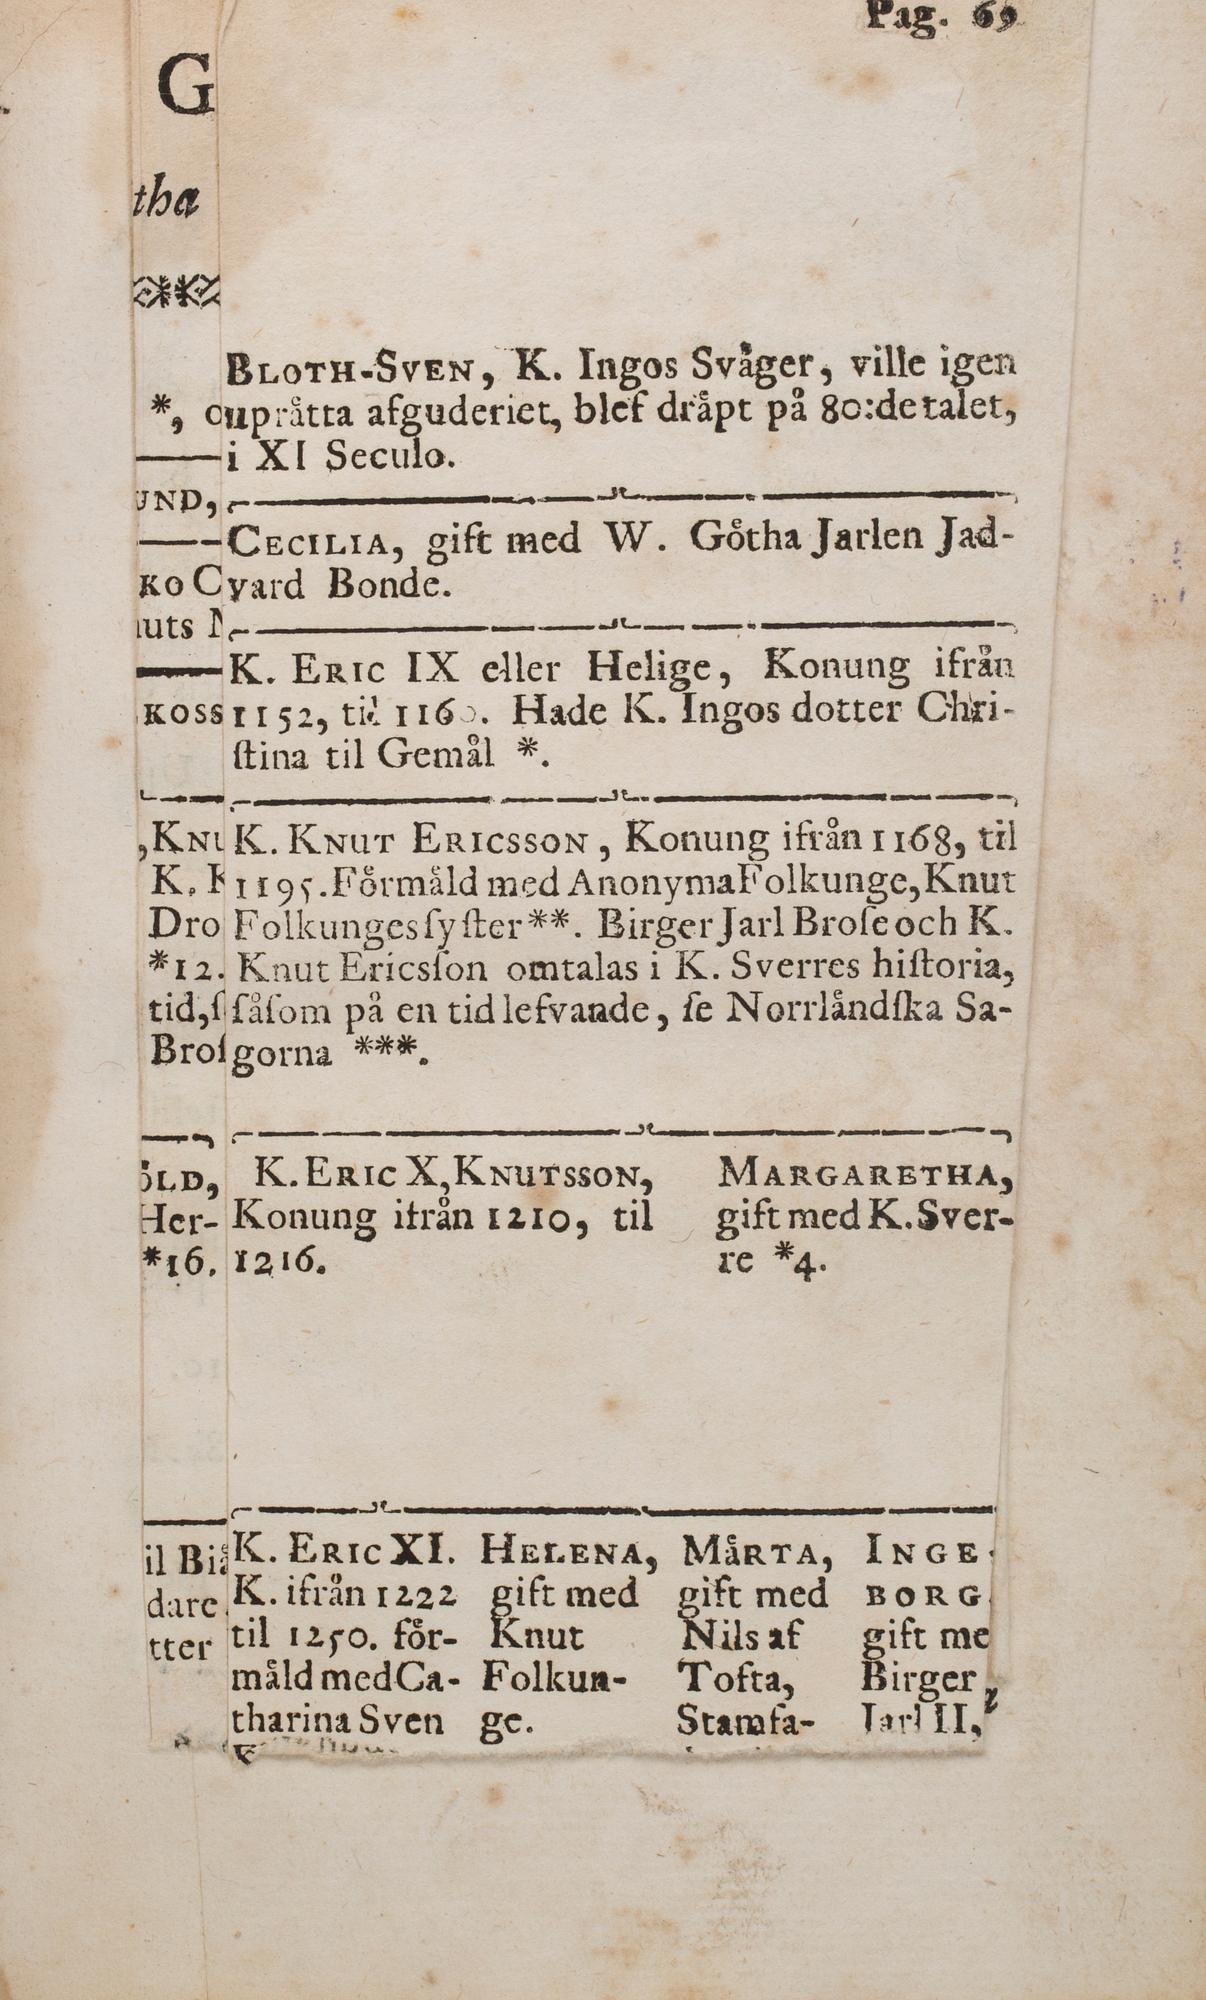 Pag. 69
G
tha
BLOTH-SVEN, K. Ingos Svåger, ville igen
*, upråtta afguderiet, blef dråpt på 80:de talet,
i XI Seculo.
UND,
CECILIA, gift med W. Gôtha Jarlen Jad-
KO
vard Bonde.
uts
K. ERIC IX eller Helige, Konung ifrån
KOSS
1152, til 1160. Hade K. Ingos dotter Chri-
ſtina til Gemål *.
,KNU
K. KNUT ERICSSON, Konung ifrån 1168, til
K.
1195. Fôrmåld med Anonyma Folkunge, Knut
Dro
Folkunges ſyſter **. Birger Jarl Broſe och K.
*12.
Knut Ericsſon omtalas i K. Sverres hiſtoria,
tid,
ſåſom på en tid lefvande, ſe Norrlåndſka Sa-
Broſ
gorna ***.
ÔLD,
Her-
*16.
K. ERIC X, KNUTSSON,
Konung ifrån 1210, til
1216.
MARGARETHA,
gift med K. Sver-
re *4.
il Biå
dare
tter
K. ERIC XI.
K. ifrån 1222
til 1250. fôr-
måld med Ca-
tharina Sven
HELENA,
gift med
Knut
Folkun-
ge.
MåRTA,
gift med
Nils af
Tofta,
Stamfa-
INGE-
BORG
gift me
Birger
Jarl II,